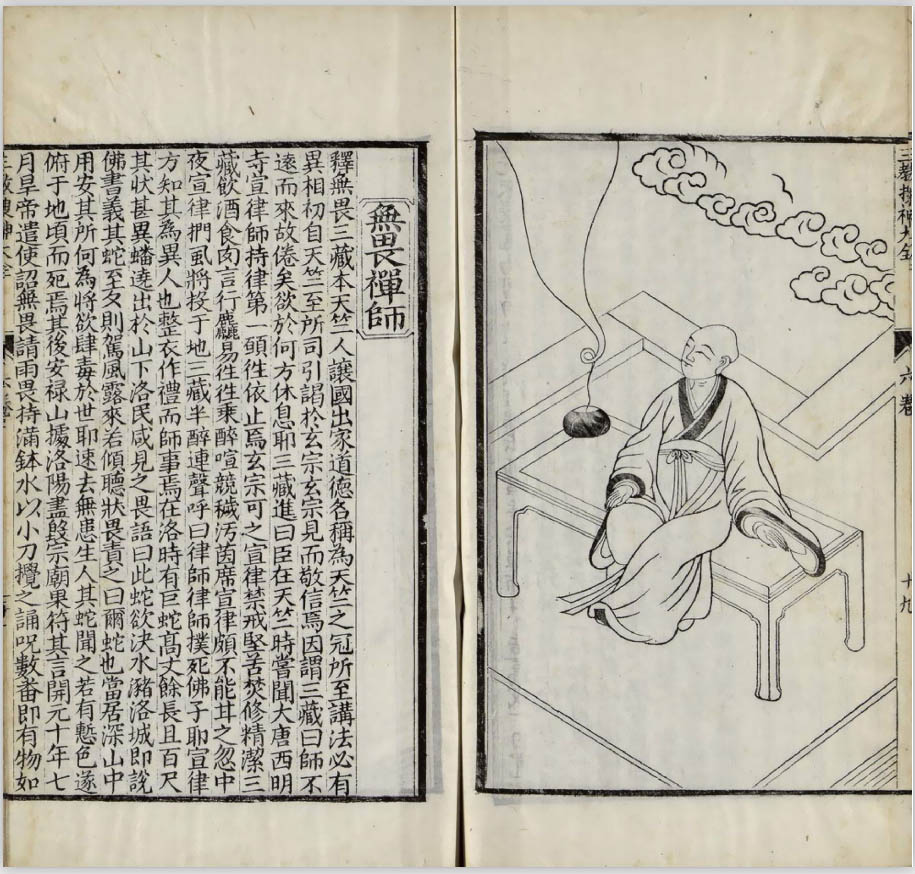 三教搜神大全
六卷
十九
無畏禪師
釋無畏三藏本天竺人讓國出家道德名稱為天竺之冠所至講法必有
異相初自天竺至所司引謁於玄宗玄宗見而敬信焉因謂三藏曰師不
遠而來故倦矣欲於何方休息耶三藏進曰臣在天竺時嘗聞大唐西明
寺宣律師持律第一頭徃依止焉玄宗可之宣律禁戒堅苦焚修精潔三
藏飲酒食肉言行麤易徃徃乗醉喧競穢汚茵席宣律頗不能甘之忽中
夜宣律捫虱將投于地三藏半醉連聲呼曰律師律師撲死佛子耶宣律
方知其為異人也整衣作禮而師事焉在洛時有巨蛇髙丈餘長且百尺
其狀甚異蟠遶出於山下洛民咸見之畏語曰此蛇欲决水瀦洛城即說
佛書義其蛇至夕則駕風露來若傾聽狀畏責之曰爾蛇也當居深山中
用安其所何為將欲肆毒於世耶速去無患生人其蛇聞之若有慙色遂
俯于地頃而死焉其後安禄山據洛陽盡毀宗廟果符其言開元十年七
月旱帝遣使詔無畏請雨畏持滿鉢水以小刀攪之誦呪數番即有物如